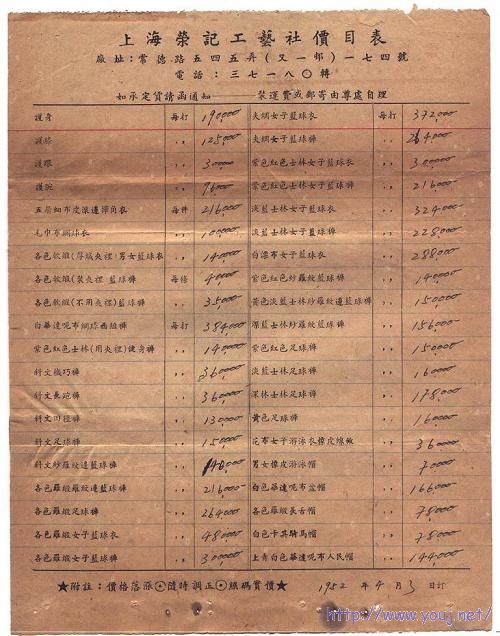 上海榮記工藝社價目表
廠址：常德路五四五弄(又一邨)一七四號
電話：三七一八〇轉
如承定貨請函通知——裝運費或郵寄由尊處自理
護身 每打 190,000 夾綢女子籃球衣 每打 372,000
護膝 〃 125,000 夾綢女子籃球褲 〃 264,000
護眼 〃 30000 紫色紅色士林女子籃球衣 〃 300000
護腕 〃 96000 紫色紅色士林女子籃球褲 〃 216000
五層細布皮滾邊摔角衣 每件 216,000 淡藍士林女子籃球衣 〃 324000
毛巾布網球衣 〃 100,000 淡藍士林女子籃球褲 〃 228,000
各色軟緞(厚絨夾裡)男女籃球衣 〃 140000 白漂布女子籃球衣 〃 288000
各色軟緞(裝夾裡)籃球褲 每條 40,000 紫色紅色紗羅紋籃球褲 〃 140000
各色軟緞(不用夾裡)籃球褲 〃 35,000 黃色淡藍士林紗羅紋邊籃球褲 〃 150000
白華達呢布網球西短褲 每打 384,000 深藍士林紗羅紋籃球褲 〃 156000
紫色紅色士林(用夾裡)健身褲 〃 140000 紫色紅色足球褲 〃 150000
斜文機巧褲 〃 360000 淡藍士林足球褲 〃 160000
斜文長跑褲 〃 360000 深林士林足球褲 〃 178,000
斜文田徑褲 〃 130000 黃色足球褲 〃 160000
斜文足球褲 〃 150000 花布女子游泳衣橡皮線緻 〃 36000
斜文紗羅紋邊籃球褲 〃 140000 男女橡皮游泳帽 〃 70000
各色羅緞羅紋邊籃球褲 〃 216000 白色華達呢布盆帽 〃 166000
各色羅緞足球褲 〃 264,000 各色羅緞長舌帽 〃 78000
各色羅緞女子籃球衣 〃 48000 白色卡其騎馬帽 〃 78000
各色羅緞女子籃球褲 〃 300000 上青白色華達呢布人民帽 〃 144,000
★附註：價格落漲⊙隨時調正⊙照碼實價★ 1952 年 4 月 3 日訂
http://www.youj.net/